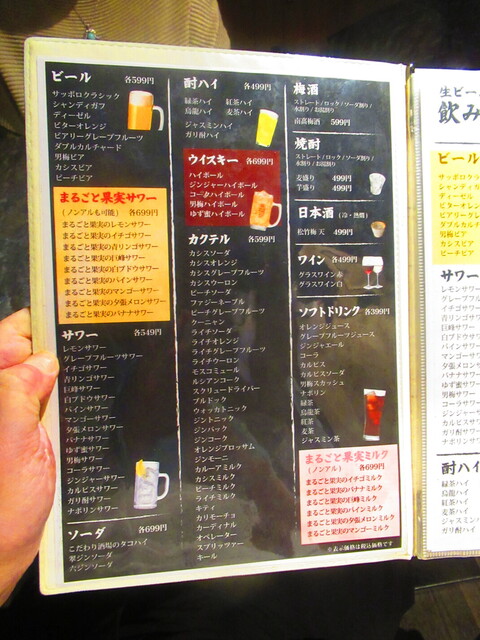 ビール 各599円
サッポロクラシック
シャンディガフ
ディーゼル
ビターオレンジ
ビアリーグレープフルーツ
ダブルカルチャード
男梅ビア
カシスビア
ピーチビア
まるごと果実サワー
(ノンアルも可能) 各699円
まるごと果実のレモンサワー
まるごと果実のイチゴサワー
まるごと果実の青リンゴサワー
まるごと果実の巨峰サワー
まるごと果実の白ブドウサワー
まるごと果実のパインサワー
まるごと果実のマンゴーサワー
まるごと果実の夕張メロンサワー
まるごと果実のバナナサワー
サワー 各549円
レモンサワー
グレープフルーツサワー
イチゴサワー
青リンゴサワー
巨峰サワー
白ブドウサワー
パインサワー
マンゴーサワー
夕張メロンサワー
バナナサワー
ゆず蜜サワー
男梅サワー
コーラサワー
ジンジャーサワー
カルピスサワー
ガリ酎サワー
ナポリンサワー
ソーダ 各699円
こだわり酒場のタコハイ
翠ジンソーダ
六ジンソーダ
酎ハイ 各499円
緑茶ハイ 紅茶ハイ
烏龍ハイ 麦茶ハイ
ジャスミンハイ
ガリ酎ハイ
ウイスキー 各699円
ハイボール
ジンジャーハイボール
コークハイボール
男梅ハイボール
ゆず蜜ハイボール
カクテル 各599円
カシスソーダ
カシスオレンジ
カシスグレープフルーツ
カシスウーロン
ピーチソーダ
ファジーネーブル
ピーチグレープフルーツ
クーニャン
ライチソーダ
ライチオレンジ
ライチグレープフルーツ
ライチウーロン
モスコミュール
ルシアンコーク
スクリュードライバー
ブルドック
ウォッカトニック
ジントニック
ジンバック
ジンコーク
オレンジブロッサム
ジンビーム
カルーアミルク
カシスミルク
ピーチミルク
ライチミルク
キティ
カリモーチョ
カーディナル
オペレーター
スプリッツァー
キール
梅酒
ストレート/ロック/ソーダ割り/
水割り/お湯割り
南高梅酒 599円
焼酎
ストレート/ロック/ソーダ割り/
水割り/お湯割り
麦盛り 499円
芋盛り 499円
日本酒 (冷・熱燗)
松竹梅 天 499円
ワイン 各499円
グラスワイン赤
グラスワイン白
ソフトドリンク 各399円
オレンジジュース
グレープフルーツジュース
ジンジャエール
コーラ
カルピス
カルピスソーダ
男梅スカッシュ
ナポリン
緑茶
烏龍茶
紅茶
麦茶
ジャスミン茶
まるごと果実ミルク
(ノンアル) 各699円
まるごと果実のイチゴミルク
まるごと果実のバナナミルク
まるごと果実の巨峰ミルク
まるごと果実のパインミルク
まるごと果実の夕張メロンミルク
まるごと果実のマンゴーミルク
※表示価格は税込価格です
生ビー
飲み
ビール
サッポロクラ
シャンディガ
ディーゼル
ビターオレン
ビアリーグレ
ダブルカルチ
男梅ビア
カシスビア
ピーチビア
サワー
レモンサワー
グレープフル
イチゴサワー
青リンゴサワ
巨峰サワー
白ブドウサワ
パインサワー
マンゴーサワ
夕張メロンサ
バナナサワー
ゆず蜜サワー
男梅サワー
コーラサワー
ジンジャーサ
カルピスサワ
ガリ酎サワー
ナポリンサワ
酎ハイ
緑茶ハイ
烏龍ハイ
紅茶ハイ
麦茶ハイ
ジャスミンハ
ガリ酎ハイ